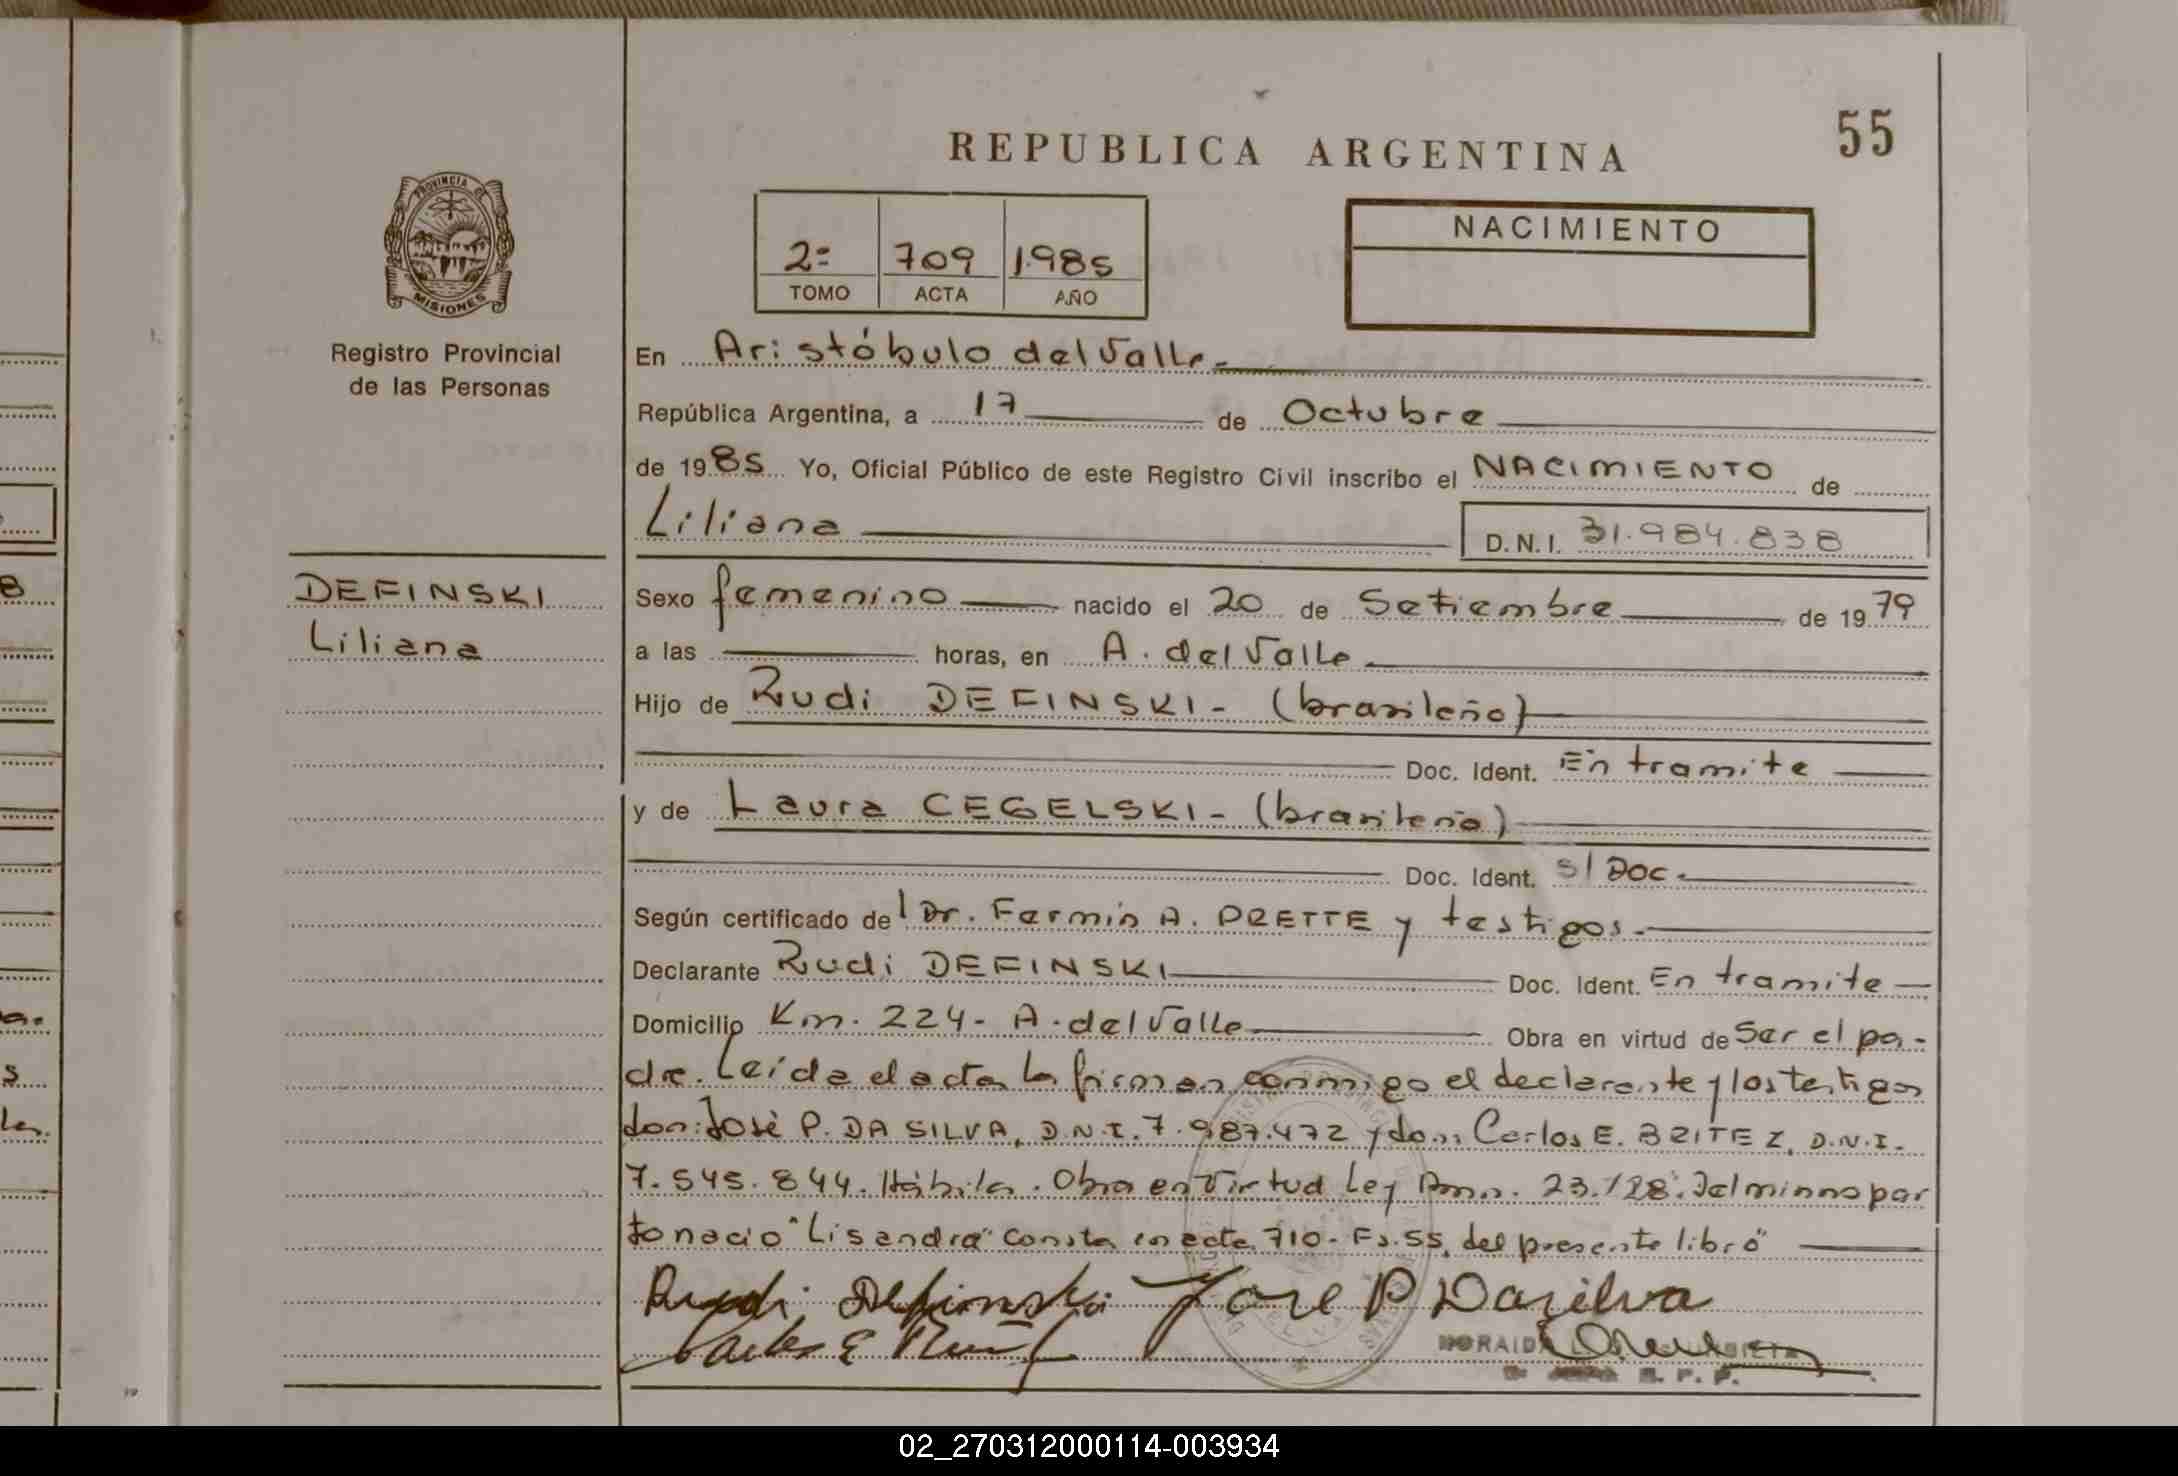 REPUBLICA ARGENTINA
55
PROVINCIA DE
MISIONES
2= 709 1.985
TOMO ACTA AÑO
NACIMIENTO
Registro Provincial
de las Personas
En Aristóbulo del Valle.
República Argentina, a 17 de Octubre
de 1985 Yo, Oficial Público de este Registro Civil inscribo el NACIMIENTO de
Liliana D.N.I. 31.984.838
DEFINSKI
Liliana
Sexo femenino nacido el 20 de Setiembre de 1979
a las horas, en A. del Valle
Hijo de Rudi DEFINSKI - (brasileño)
Doc. Ident. En tramite
y de Laura CEGELSKI - (brasileña)
Doc. Ident. s/ Doc.
Según certificado del Dr. Fermín A. PRETTE y testigos.
Declarante Rudi DEFINSKI Doc. Ident. En tramite
Domicilio Km. 224 - A. del Valle Obra en virtud de Ser el pa-
dre. Leída el acta la firman conmigo el declarante y los testigos
don: José P. DA SILVA, D.N.I. 7.987.472 y don: Carlos E. BRITEZ, D.N.I.
7.545.844. Hábiles. Obra en Virtud Ley 23.128. Del mismo par
to nacio "Lisandra" consta en acta 710 - Fs. 55, del presente libro"
Rudi Definski Jose P Dasilva
Carlos E
NORAID
R. P. P.
02_270312000114-003934